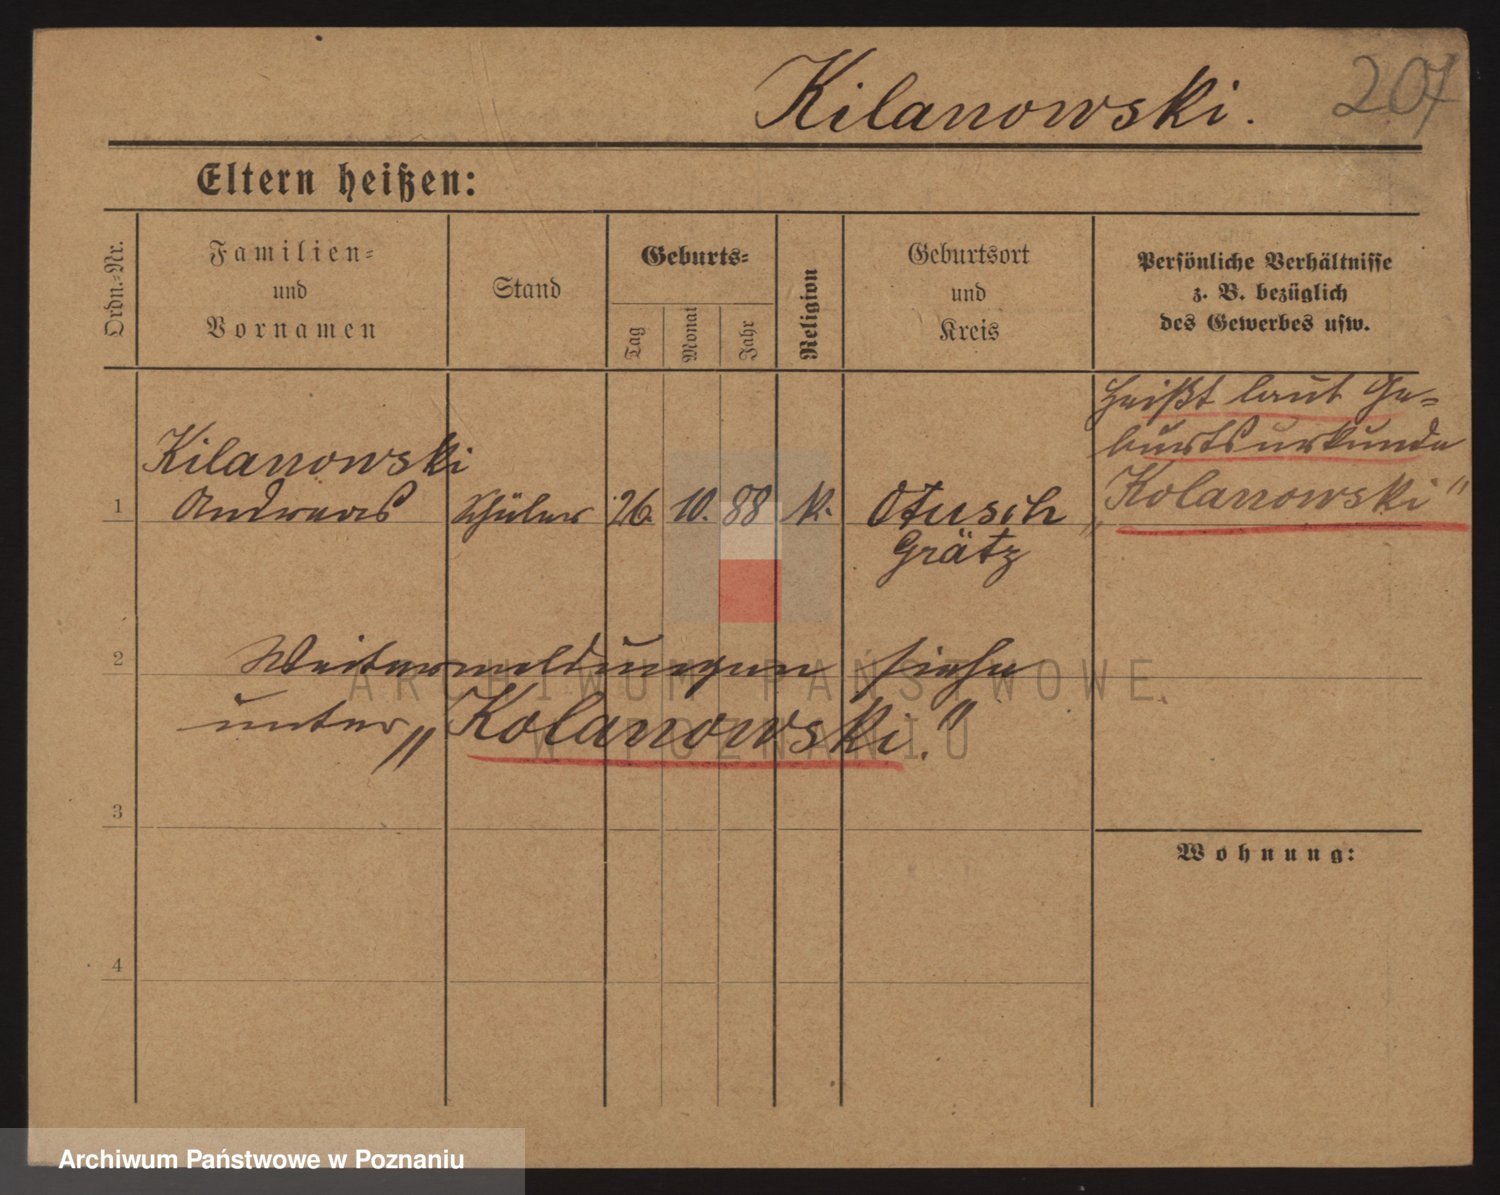 Kilanowski.
207
Eltern heißen:
Ordn.-Nr.
Familien-
und
Vornamen
Stand
Geburts-
Tag
Monat
Jahr
Religion
Geburtsort
und
Kreis
Persönliche Verhältnisse
z. B. bezüglich
des Gewerbes usw.
heißt laut Ge-
burtsurkunde
„Kolanowski"
Kilanowski
1 Andreas Schüler 26. 10. 88 k. Otusch
Grätz
2 Weitermeldungen siehe
unter „Kolanowski."
3
4
Wohnung:
ARCHIWUM PAŃSTWOWE
W POZNANIU
Archiwum Państwowe w Poznaniu